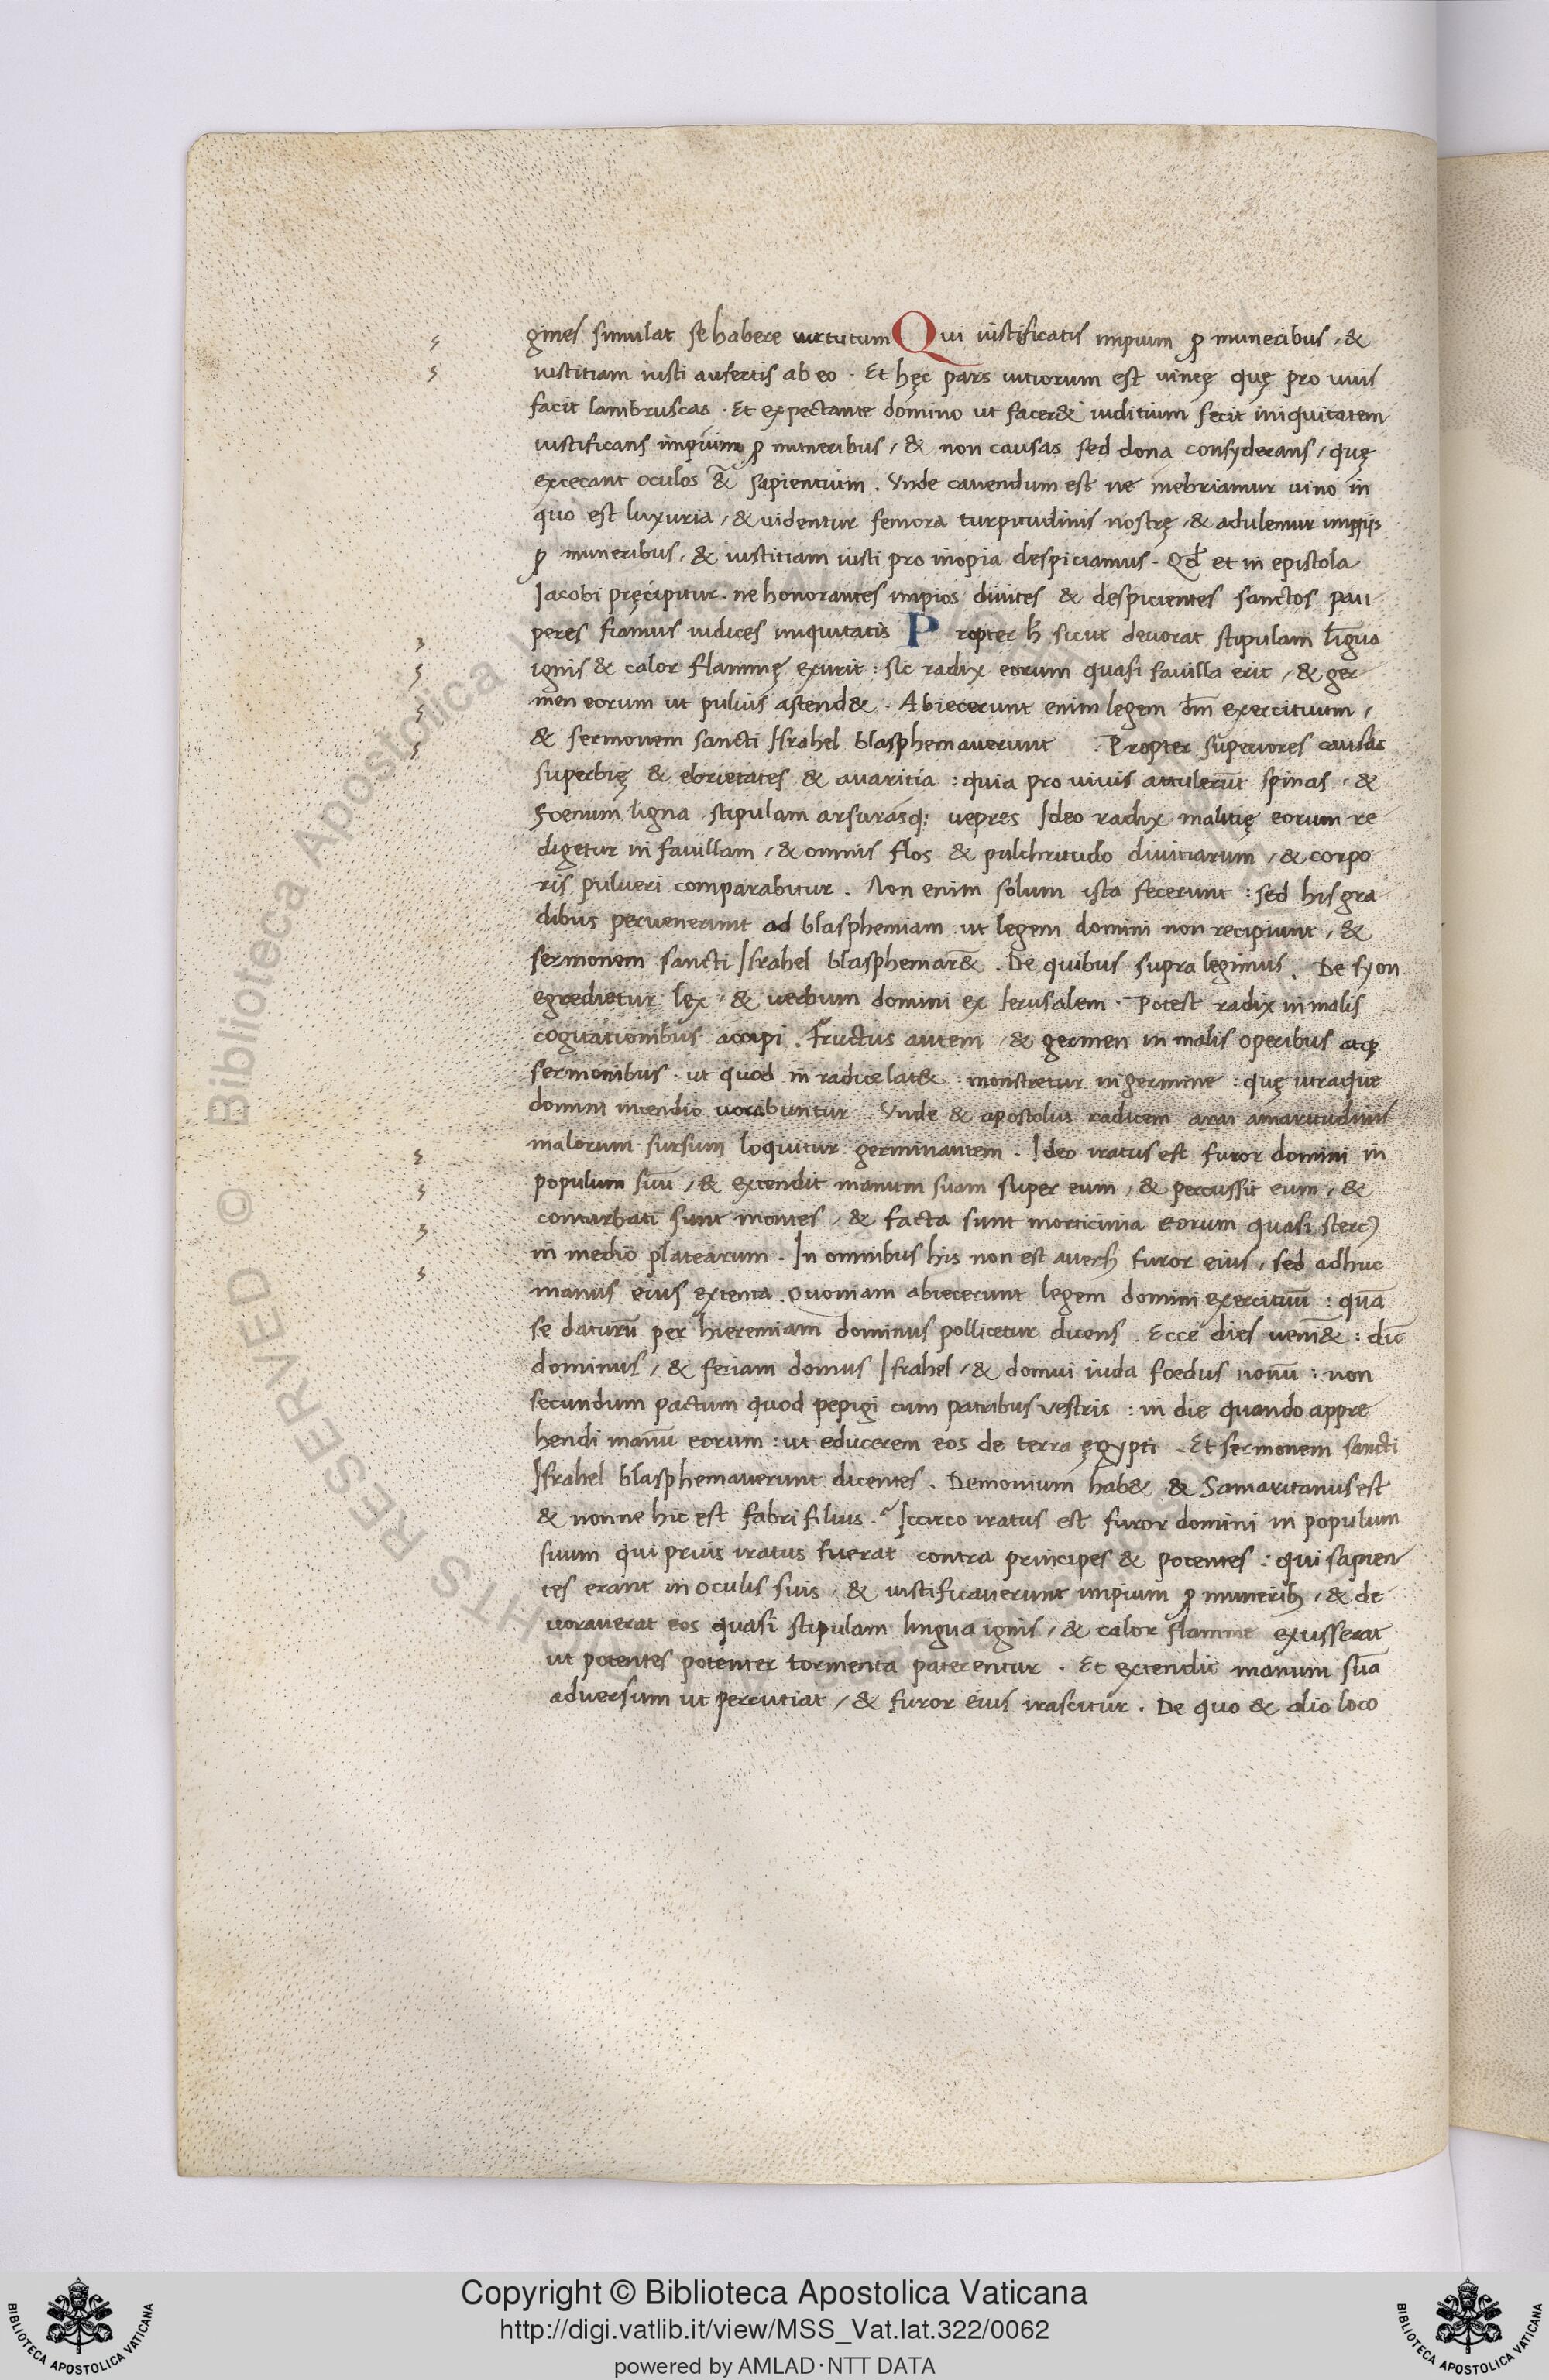 gines simulat se habere uirtutum Qui iustificatis impium ꝓ muneribus, &
iustitiam iusti aufertis ab eo. Et hęc pars uitiorum est uineę quę pro uuis
facit lambruscas. Et expectante domino ut facer& iuditium fecit iniquitatem
iustificans impium ꝓ muneribus, & non causas sed dona consyderans, quę
excecant oculos &̃ sapientium. Vnde cauendum est ne inebriamur uino in
quo est luxuria, & uidentur femora turpitudinis nostrę, & adulemur impijs
ꝓ muneribus, & iustitiam iusti pro inopia despiciamus. Qđ et in epistola
Iacobi pręcipitur. ne honorantes impios diuites & despicientes sanctos pau
peres fiamus iudices iniquitatis Propter ħ sicut deuorat stipulam lĩgua
ignis & calor flammę exurit: sic radix eorum quasi fauilla erit, & ger
men eorum ut puluis astend&. Abiecerunt enim legem dñi exercituum,
& sermonem sancti Israhel blasphemauerunt. Propter superiores causas
superbię & ebrietates & auaritia: quia pro uiuis attulerũt spinas, &
Foenum ligna, stipulam arsurasq; uepres Ideo radix malitię eorum re
digetur in fauillam, & omnis flos & pulchritudo diuitiarum, & corpo
ris pulueri comparabitur. Non enim solum ista fecerunt: sed his gra
dibus peruenerunt ad blasphemiam ut legem domini non recipiunt, &
sermonem sancti Israhel blasphemar&̃. De quibus supra legimus. De syon
egredietur lex, & uerbum domini ex Ierusalem. Potest radix in malis
cogitationibus accipi. Fructus autem, & germen in malis operibus atq
sermonibus. ut quod in radice lat& monstretur in germine: quę utraque
domini incendio uorabuntur. Vnde & apostolus radicem amaritudinis
malorum sursum loquitur germinantem. Ideo iratus est furor domini in
populum suũ, & extendit manum suam super eum, & percussit eum, &
conturbati sunt montes, & facta sunt morticinia eorum quasi sterc᾿
in medio platearum. In omnibus his non est auers̃ furor eius, sed adhuc
manus eius extenta. Quoniam abiecerunt legem domini exercituũ: quã
se daturũ per hieremiam dominus pollicetur dicens. Ecce dies ueni&̃: dic̃
dominus, & feriam domus Israhel, & domui iuda foedus nouũ: non
secundum pactum quod pepigi cum patribus vestris: in die quando appre
hendi manũ eorum: ut educerem eos de terra ęgypti. Et sermonem sancti
Israhel blasphemauerunt dicentes. Demonium hab& & Samaritanus est
& nonne hic est fabri filius.? Iccirco iratus est furor domini in populum
suum qui prius iratus fuerat contra principes & potentes: qui sapien
tes erant in oculis suis, & iustificauerunt impium ꝓ munerib;, & de
uorauerat eos quasi stipulam lingua ignis, & calor flamme exusserat
ut potentes potenter tormenta paterentur. Et extendit manum suã
adversum ut percutiat, & furor eius irascitur. De quo & alio loco
© Biblioteca Apostolica Vaticana
RIGHTS RESERVED
Copyright © Biblioteca Apostolica Vaticana
http://digi.vatlib.it/view/MSS_Vat.lat.322/0062
powered by AMLAD·NTT DATA
BIBLIOTECA APOSTOLICA VATICANA
BIBLIOTECA APOSTOLICA VATICANA